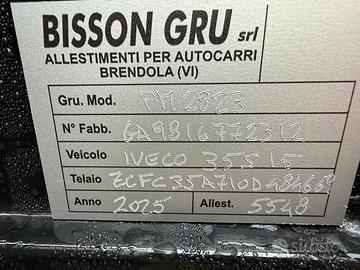 BISSON GRU srl
ALLESTIMENTI PER AUTOCARRI
BRENDOLA (VI)
Gru. Mod. PM2823
N° Fabb. GA9816772312
Veicolo IVECO 35S15
Telaio ZCFC35A710D484668
Anno 2025 Allest. 5548
subito